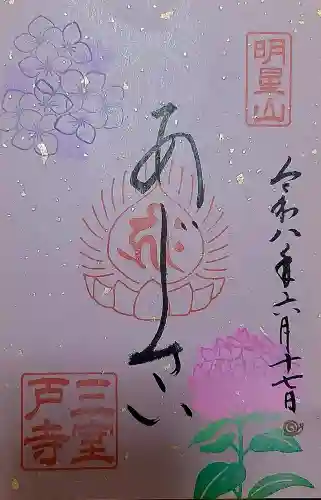 明星山
令和八年六月十七日
あじさい
三室
戸寺